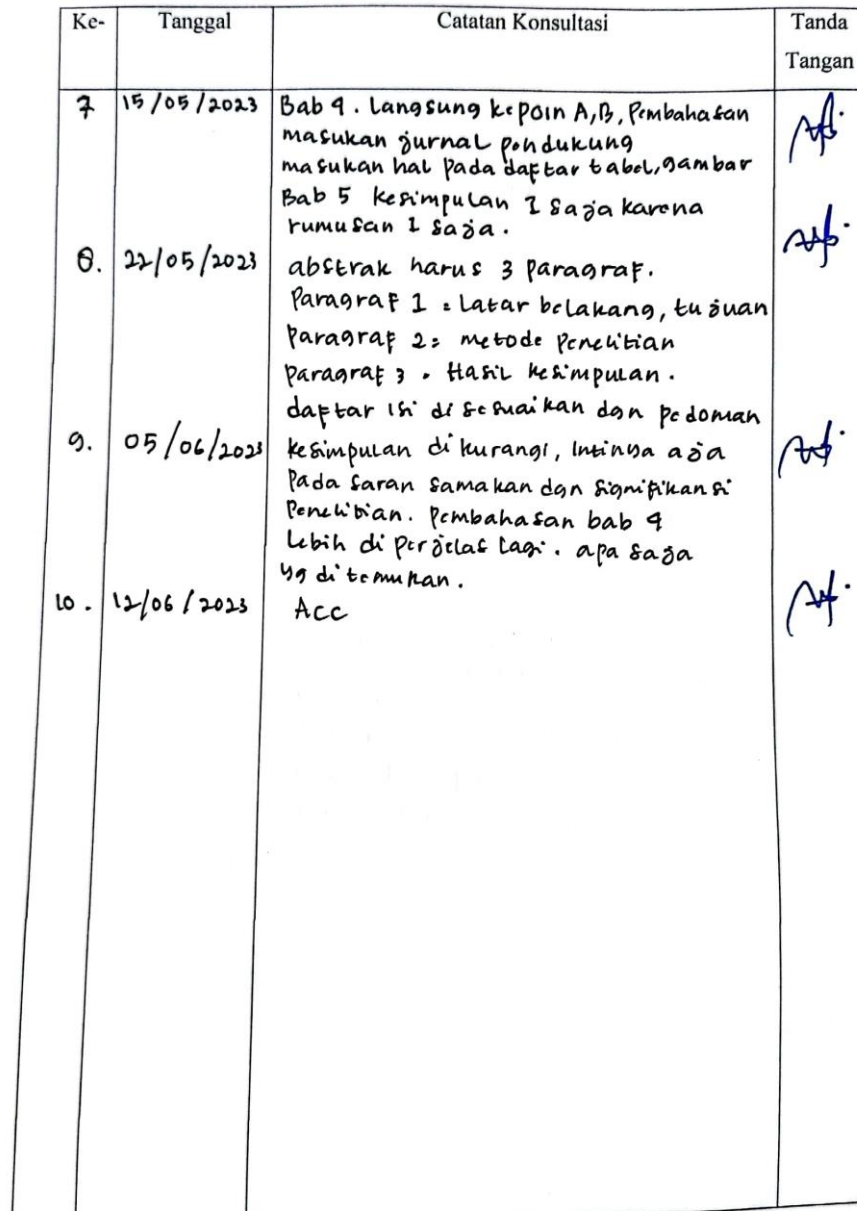 Ke- Tanggal Catatan Konsultasi Tanda Tangan
7 15/05/2023 Bab 4. Langsung kepoin A,B, Pembahasan
masukan jurnal pendukung
masukan hal pada daftar tabel, gambar
Bab 5 kesimpulan 1 saja karena
rumusan 1 saja.
8. 22/05/2023 abstrak harus 3 paragraf.
Paragraf 1 = Latar belakang, tujuan
Paragraf 2 = metode Penelitian
Paragraf 3 = Hasil kesimpulan.
daftar isi di sesuaikan dgn pedoman
9. 05/06/2023 kesimpulan di kurangi, Intinya aja
Pada saran samakan dgn signifikansi
Penelitian. Pembahasan bab 4
Lebih di perjelas lagi. apa saja
yg di temukan.
10. 12/06/2023 Acc